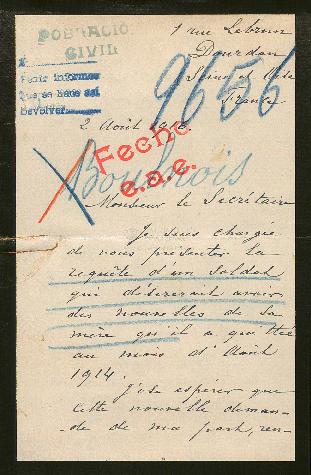 POBLACIO
CIVIL
Pedir informes
Que se hace así
Devolver
1 rue Lebrun
Dourdan
Seine et Oise
France
9656
2 Août 191
Fecha
e.n.e.
Boulnois
Monsieur le Secrétaire
Je suis chargée
de vous présenter la
requête d'un soldat
qui désirerait avoir
des nouvelles de sa
mère qu'il a quittée
au mois d'Août
1914.
J'ose espérer que
cette nouvelle deman-
de de ma part, ren-